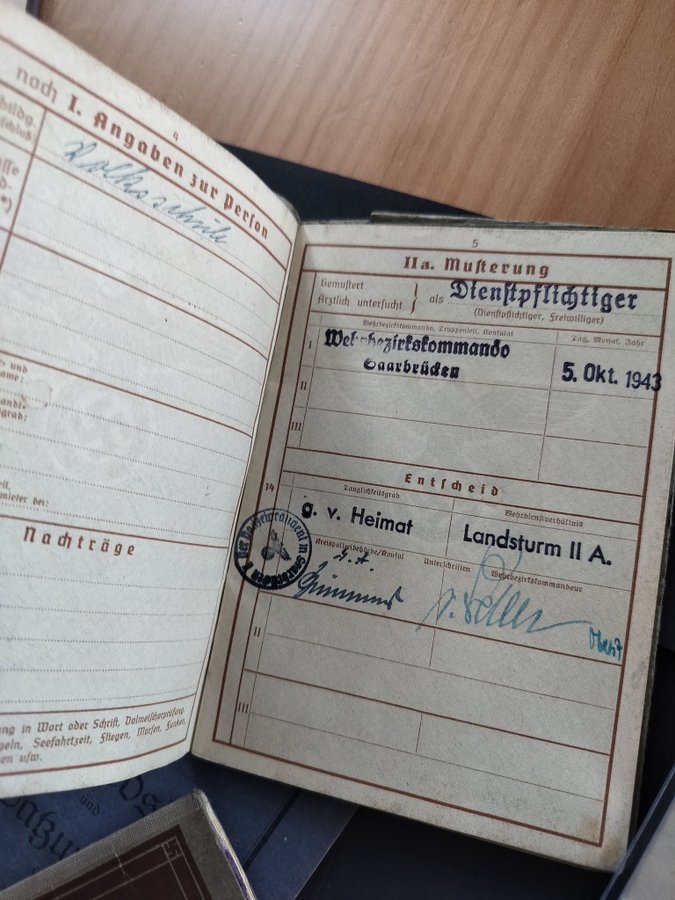 4
noch I. Angaben zur Person
Volksschule
Nachträge
ung in Wort oder Schrift, Dolmetscherprüfung,
geln, Seefahrtzeit, Fliegen, Morsen, Funken,
en usw.
5
IIa. Musterung
Gemustert
Ärztlich untersucht } als Dienstpflichtiger
(Dienstpflichtiger, Freiwilliger)
Wehrbezirkskommando, Truppenteil, Konsulat
Tag, Monat, Jahr
I Wehrbezirkskommando
Saarbrücken
5. Okt. 1943
II
III
14
Entscheid
Tauglichkeitsgrad
Wehrdienstverhältnis
g. v. Heimat
Landsturm II A.
Kreispolizeibehörde/Konsul
Unterschriften
Wehrbezirkskommandeur
II
III
und